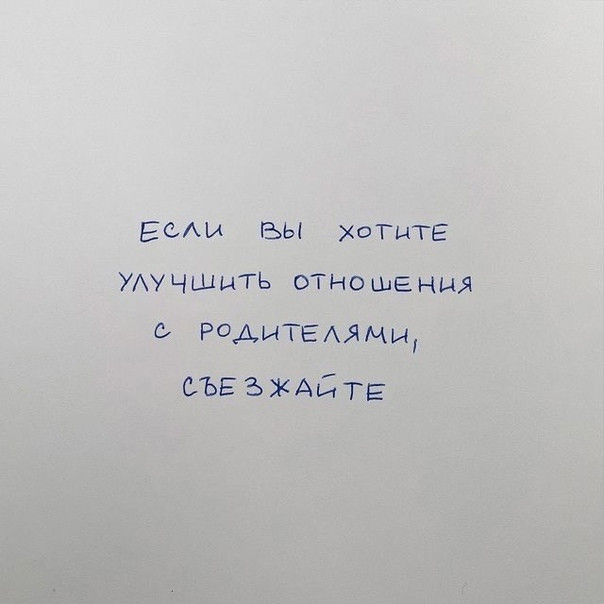 ЕСЛИ ВЫ ХОТИТЕ
УЛУЧШИТЬ ОТНОШЕНИЯ
С РОДИТЕЛЯМИ,
СЪЕЗЖАЙТЕ